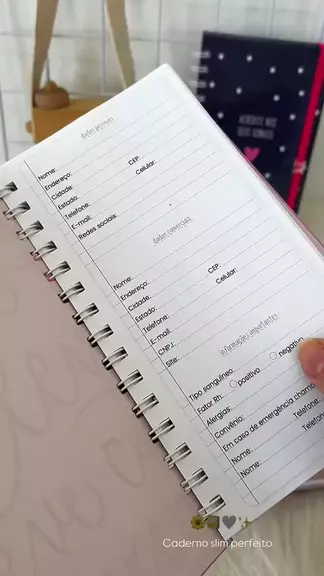 dados pessoais
Nome:
Endereço: CEP:
Cidade: Celular:
Estado:
Telefone:
E-mail:
Redes sociais:
dados comerciais
Nome:
Endereço: CEP:
Cidade: Celular:
Estado:
Telefone:
E-mail:
CNPJ:
Site:
informações importantes
Tipo sanguíneo
Fator Rh: positivo negativo
Alergias:
Convênio:
Em caso de emergência chamar
Nome: Telefone:
Nome: Telefon
ACREDITE NOS
SEUS SONHOS
Caderno slim perfeito